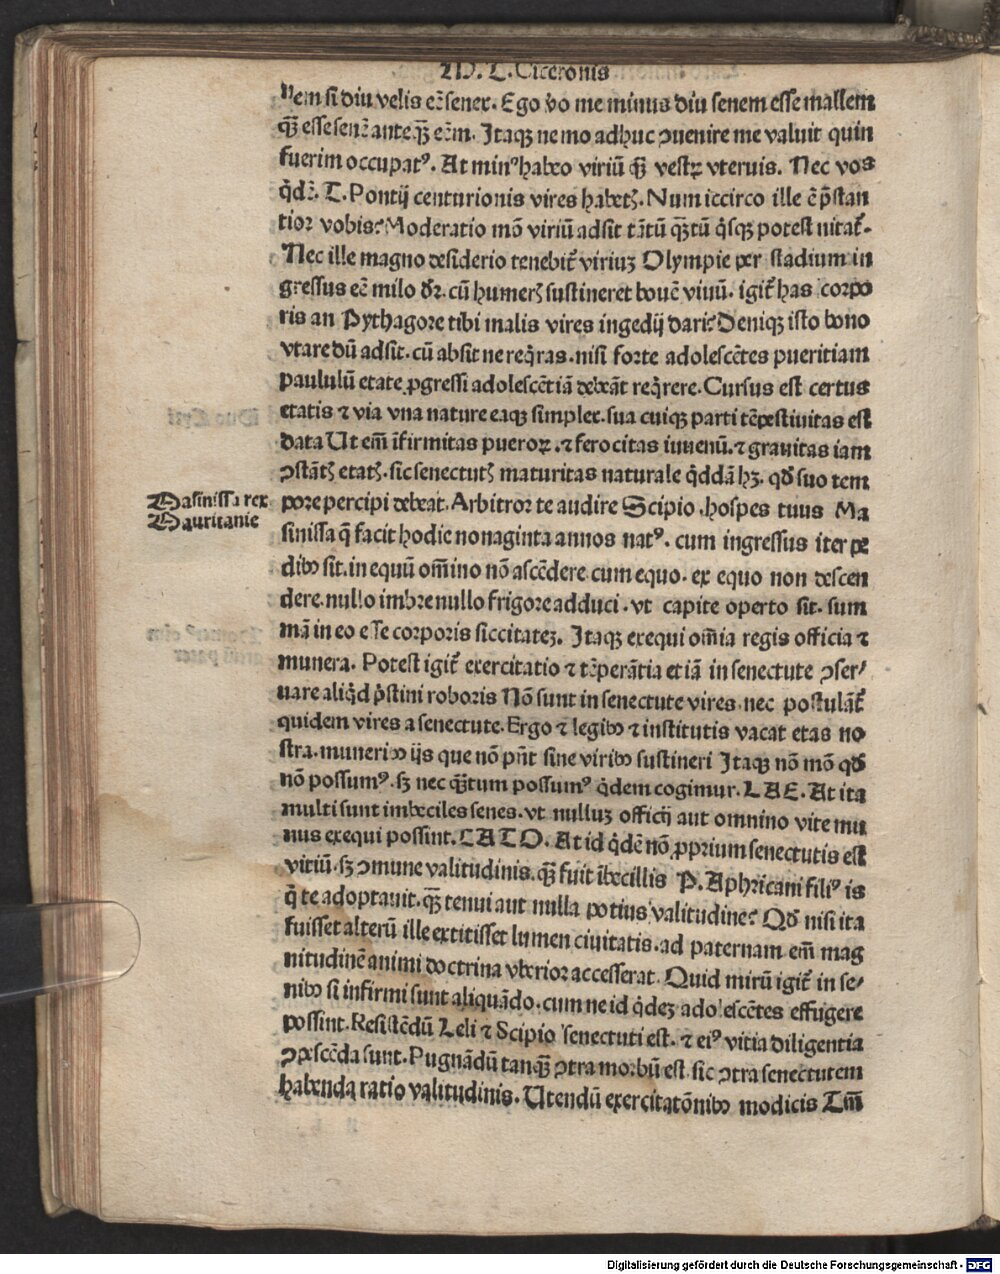 M. T. Ciceronis
nem si diu velis eē senex. Ego ṽo me minus diu senem esse mallem
qꝫ̄ esse senē anteqꝫ̄ eēm. Itaqꝫ nemo adhuc ꝯuenire me valuit quin
fuerim occupatꝰ. At minꝰ habeo viriū qꝫ̄ vestꝝ vteruis. Nec vos
q̇dē. T. Pontij centurionis vires habetꝭ. Num iccirco ille ē p̄stan
tior vobis? Moderatio mō viriū adsit tātū qꝫ̄tū q̇sqꝫ potest nitat̃.
Nec ille magno desiderio tenebit̃ viriuꝫ Olympie per stadium in
gressus eē milo dr̄. cū humerꝭ sustineret bouē viuū. igit̃ has corpo
ris an Pythagore tibi malis vires ingedij dari? Deniqꝫ isto bono
vtare dū adsit. cū absit ne req̇ras. nisi forte adolescētes pueritiam
paululū etate ꝓgressi adolescētiā debeāt req̇rere. Cursus est certus
etatis ⁊ via vna nature eaqꝫ simplex. sua cuiqꝫ parti tēpestiuitas est
data Ut em̄ īfirmitas pueroꝝ. ⁊ ferocitas iuuenū. ⁊ grauitas iam
ꝯstātꝭ etatꝭ. sic senectutꝭ maturitas naturale q̇ddā hꝫ. qď suo tem
Masinissa rex
Mauritanie
pore percipi debeat. Arbitror te audire Scipio. hospes tuus Ma
sinissa q̄ facit hodie nonaginta annos natꝰ. cum ingressus iter pe
dibꝰ sit. in equū om̄ino nō ascēdere cum equo. ex equo non descen
dere. nullo imbre nullo frigore adduci. vt capite operto sit. sum
mā in eo esse corporis siccitateꝫ. Itaqꝫ exequi om̄ia regis officia ⁊
munera. Potest igit̃ exercitatio ⁊ tēperātia etiā in senectute ꝯser/
uare aliq̇d p̄stini roboris Nō sunt in senectute vires. nec postulāt̃
quidem vires a senectute. Ergo ⁊ legibꝰ ⁊ institutis vacat etas no
stra. muneribꝰ ijs que nō pn̄t sine viribꝰ sustineri Itaqꝫ nō mō qď
nō possumꝰ. sꝫ nec qꝫ̄tum possumꝰ q̇dem cogimur. LAE. At ita
multi sunt imbeciles senes. vt nulluꝫ officij aut omnino vite mu
nus exequi possint. CATO. At id q̇dē nō ꝓprium senectutis est
vitiū. sꝫ ꝯmune valitudinis. qꝫ̄ fuit ībecillis P. Aphricani filiꝰ is
q̇ te adoptauit. qꝫ̄ tenui aut nulla potius valitudine? Qď nisi ita
fuisset alterū ille extitisset lumen ciuitatis. ad paternam em̄ mag
nitudinē animi doctrina vberior accesserat. Quid mirū igit̃ in se/
nibꝰ si infirmi sunt aliquādo. cum ne id q̇deꝫ adolescētes effugere
possint. Resistēdū Leli ⁊ Scipio senectuti est. ⁊ eiꝰ vitia diligentia
ꝯpescēda sunt. Pugnādū tanqꝫ̄ ꝯtra morbū est. sic ꝯtra senectutem
habenda ratio valitudinis. Utendū exercitatōnibꝰ modicis Tm̄
Digitalisierung gefördert durch die Deutsche Forschungsgemeinschaft - DFG